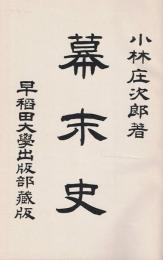 小林庄次郎著
幕末史
早稲田大學出版部藏版